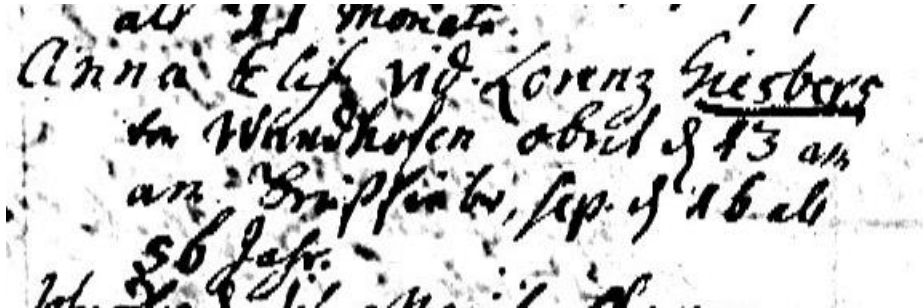 alt 11 Monate.
Anna Elis. vid. Lorenz Giesbers
von Wandhofen obiit d 13 am
an Brustfieber, sep. d 16 alt
56 Jahr.